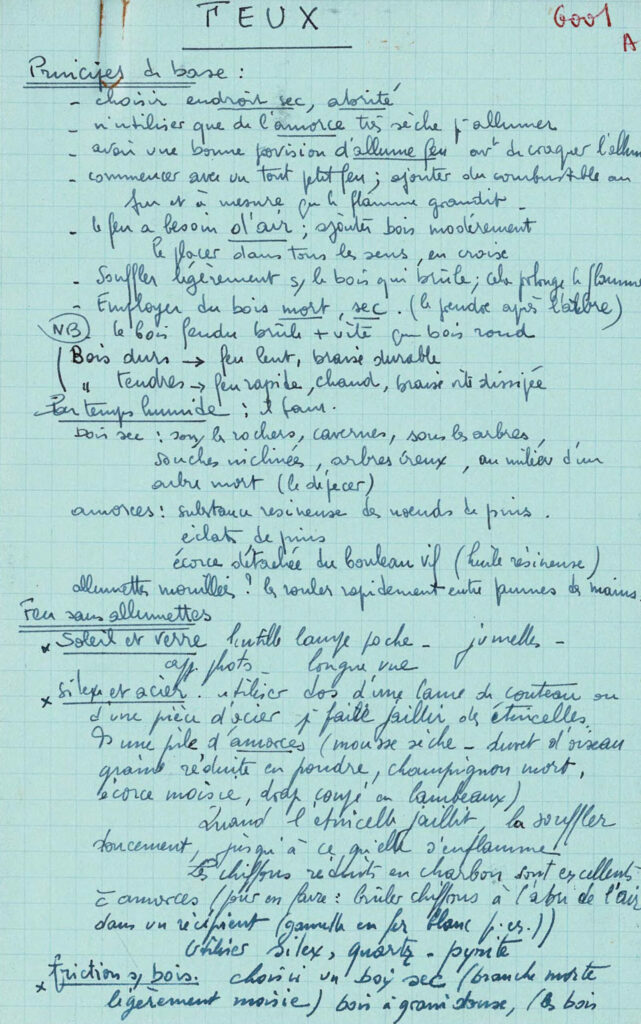 FEUX
6001
A
Principes de base :
- choisir endroit sec, abrité
- n'utiliser que de l'amorce très sèche p. allumer
- avoir une bonne provision d'allume feu avt de craquer l'allum
- commencer avec un tout petit feu ; ajouter du combustible au
fur et à mesure que la flamme grandit -
- le feu a besoin d'air ; ajouter bois modérément
le placer dans tous les sens, en croix
- Souffler légèrement s/ le bois qui brûle ; cela prolonge la flamme
- Employer du bois mort, sec. (le prendre après l'arbre)
NB. le bois fendu brûle + vite que bois rond
Bois durs → feu lent, braise durable
" tendres → feu rapide, chaud, braise vite dissipée
Par temps humide : il faut.
bois sec : sous les rochers, cavernes, sous les arbres,
souches inclinées, arbres creux, au milieu d'un
arbre mort (le dépecer)
amorces : substance résineuse des noeuds de pins.
éclats de pins
écorce détachée du bouleau vif (huile résineuse)
allumettes mouillées ? les rouler rapidement entre paumes des mains.
Feu sans allumettes
x Soleil et verre lentille lampe poche - jumelles -
app. phots - longue vue
x Silex et acier. utiliser dos d'une lame de couteau ou
d'une pièce d'acier p. faire jaillir des étincelles
s/ une pile d'amorces (mousse sèche - duvet d'oiseau
graine réduite en poudre, champignon mort,
écorce moisie, drap coupé en lambeaux)
Quand l'étincelle jaillit, la souffler
doucement, jusqu'à ce qu'elle s'enflamme.
Les chiffons réduits en charbon sont excellents
c amorces (pour en faire : brûler chiffons à l'abri de l'air
dans un récipient (gamelle en fer blanc p. ex.))
Utiliser silex, quartz - pyrite
x friction s/ bois. choisir un bois sec (branche morte
légèrement moisie) bois à grain dense, (les bois